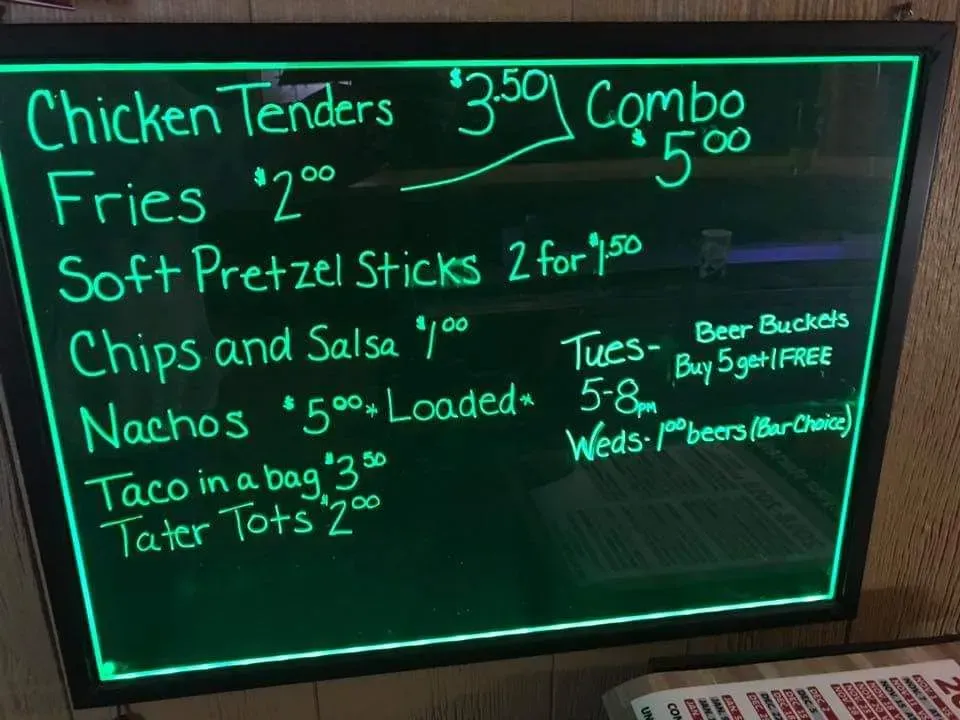 Chicken Tenders $3.50 Combo
$5.00
Fries $2.00
Soft Pretzel Sticks 2 for $1.50
Chips and Salsa $1.00
Nachos $5.00 *Loaded*
Taco in a bag $3.50
Tater Tots $2.00
Tues- Beer Buckets
Buy 5 get 1 FREE
5-8pm
Weds- 1.00 beers (Bar Choice)